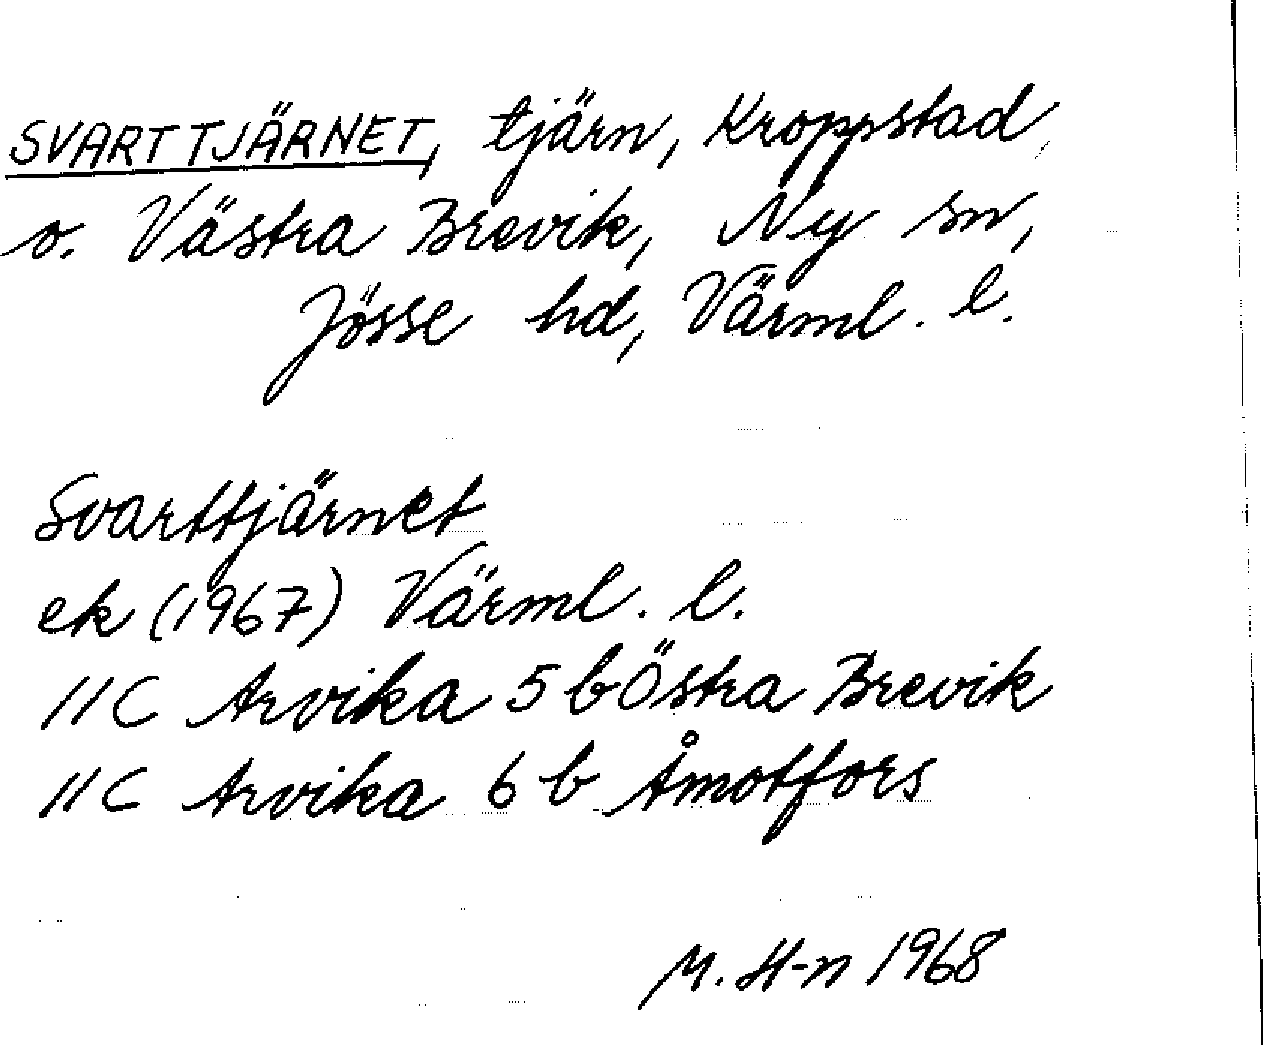 SVARTTJÄRNET, tjärn, Kroppstad,
o. Västra Brevik, Ny sn,
Jösse hd, Värml. l.
Svarttjärnet
ek (1967) Värml. l.
11C Arvika 5 b Östra Brevik
11C Arvika 6 b Åmotfors
M. H-n 1968